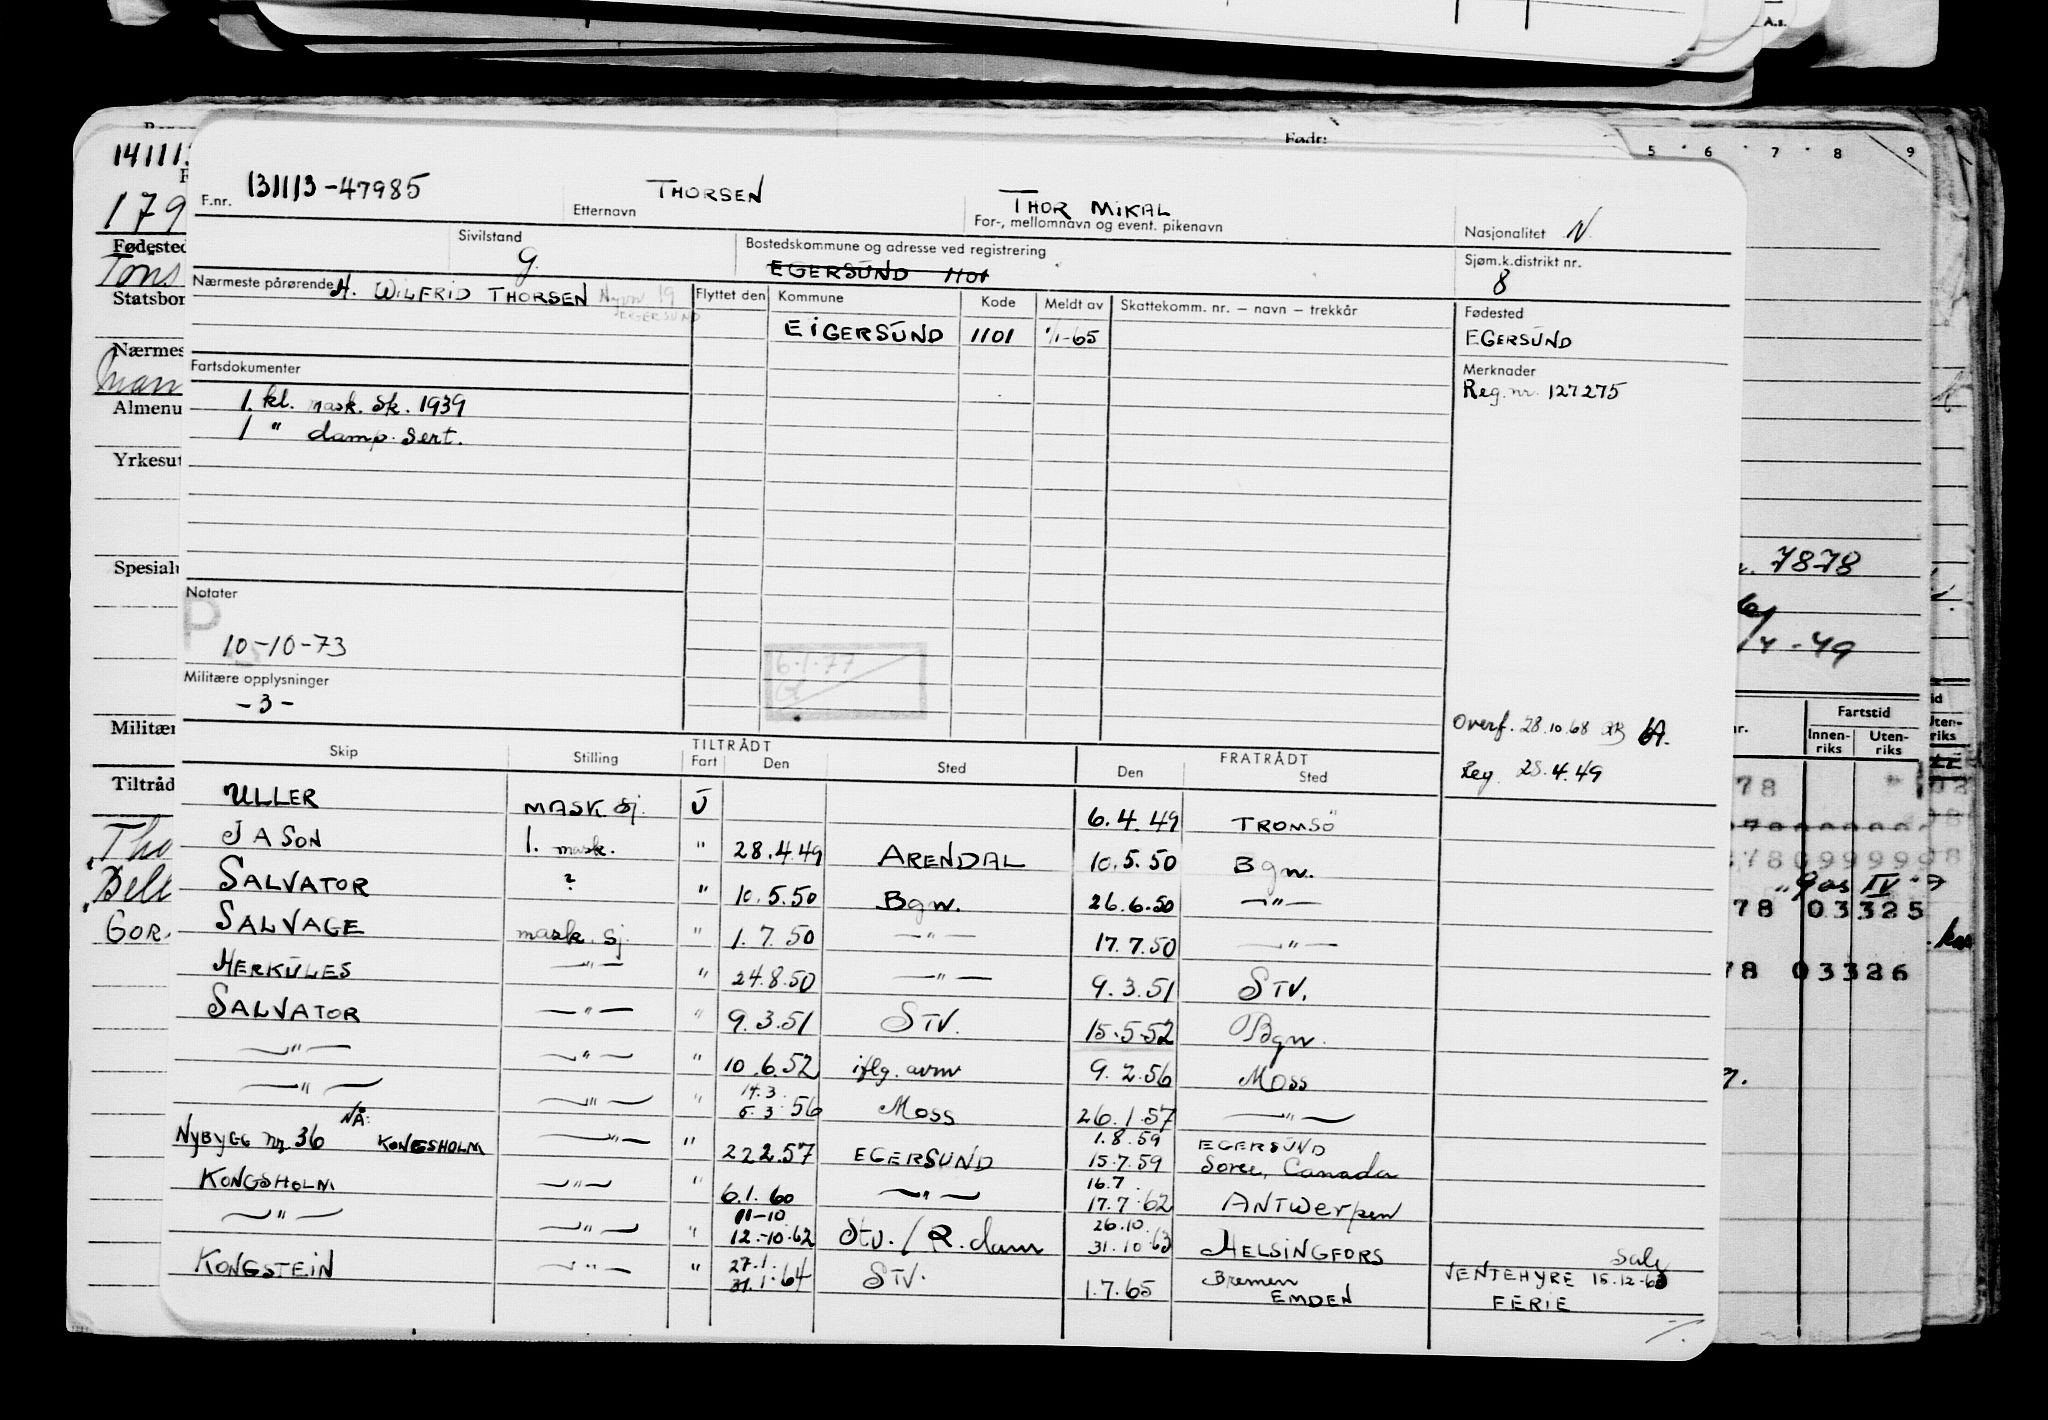 A.s.
Født:
5 6 7 8 9
F.nr. 131113-47985 Etternavn THORSEN THOR MIKAL For-, mellomnavn og event. pikenavn Nasjonalitet N.
Sivilstand G. Bostedskommune og adresse ved registrering EGERSUND 1101 Sjøm.k.distrikt nr. 8
Nærmeste pårørende H. WILFRID THORSEN Flyttet den Kommune Kode Meldt av Skattekomm. nr. — navn — trekkår Fødested
EGERSUND
EIGERSUND 1101 1/1-65 EGERSUND
Fartsdokumenter Merknader
1. kl. mask. sk. 1939 Reg. nr. 127275
1 " damp. sert.
Notater
P
10-10-73
6.1.77
Militære opplysninger
-3-
Overf. 28.10.68
Reg. 28.4.49
Skip Stilling TILTRÅDT Fart Den Sted FRATRÅDT Den Sted
ULLER MASK. sj. U 6.4.49 TROMSÖ
JASON 1. mask. " 28.4.49 ARENDAL 10.5.50 Bgn.
SALVATOR ? " 10.5.50 Bgn. 26.6.50 —"—
SALVAGE mask. sj. " 1.7.50 —"— 17.7.50 —"—
HERKULES —"— " 24.8.50 —"— 9.3.51 STV.
SALVATOR —"— " 9.3.51 STV. 15.5.52 Bgn.
—"— —"— " 10.6.52 iflg. avm 9.2.56 Moss
—"— —"— " 14.3 5.3.56 Moss 26.1.57 —"—
NYBYGG nr. 36 NÅ: KONGSHOLM —"— " 22.2.57 EGERSUND 1.8.59 15.7.59 EGERSUND Canada
KONGSHOLM —"— " 6.1.60 —"— 16.7 17.7.62 ANTWERPEN
—"— —"— " 11-10 12.-10.62 Stv. / R.dam 26.10. 31.10.63 HELSINGFORS
KONGSTEIN —"— " 27.1. 31.1.64 STV. 1.7.65 Bremen EMDEN VENTEHYRE 15.12-63 FERIE
14111
179
Fødested
Tøns
Statsbor
Nærmes
Almenu
Yrkesut
Spesialu
Militær
Tiltråd
Tho
Gor
7878
-49
Fartstid
nr. Innen-riks Uten-riks
78
78 03325
78 03326